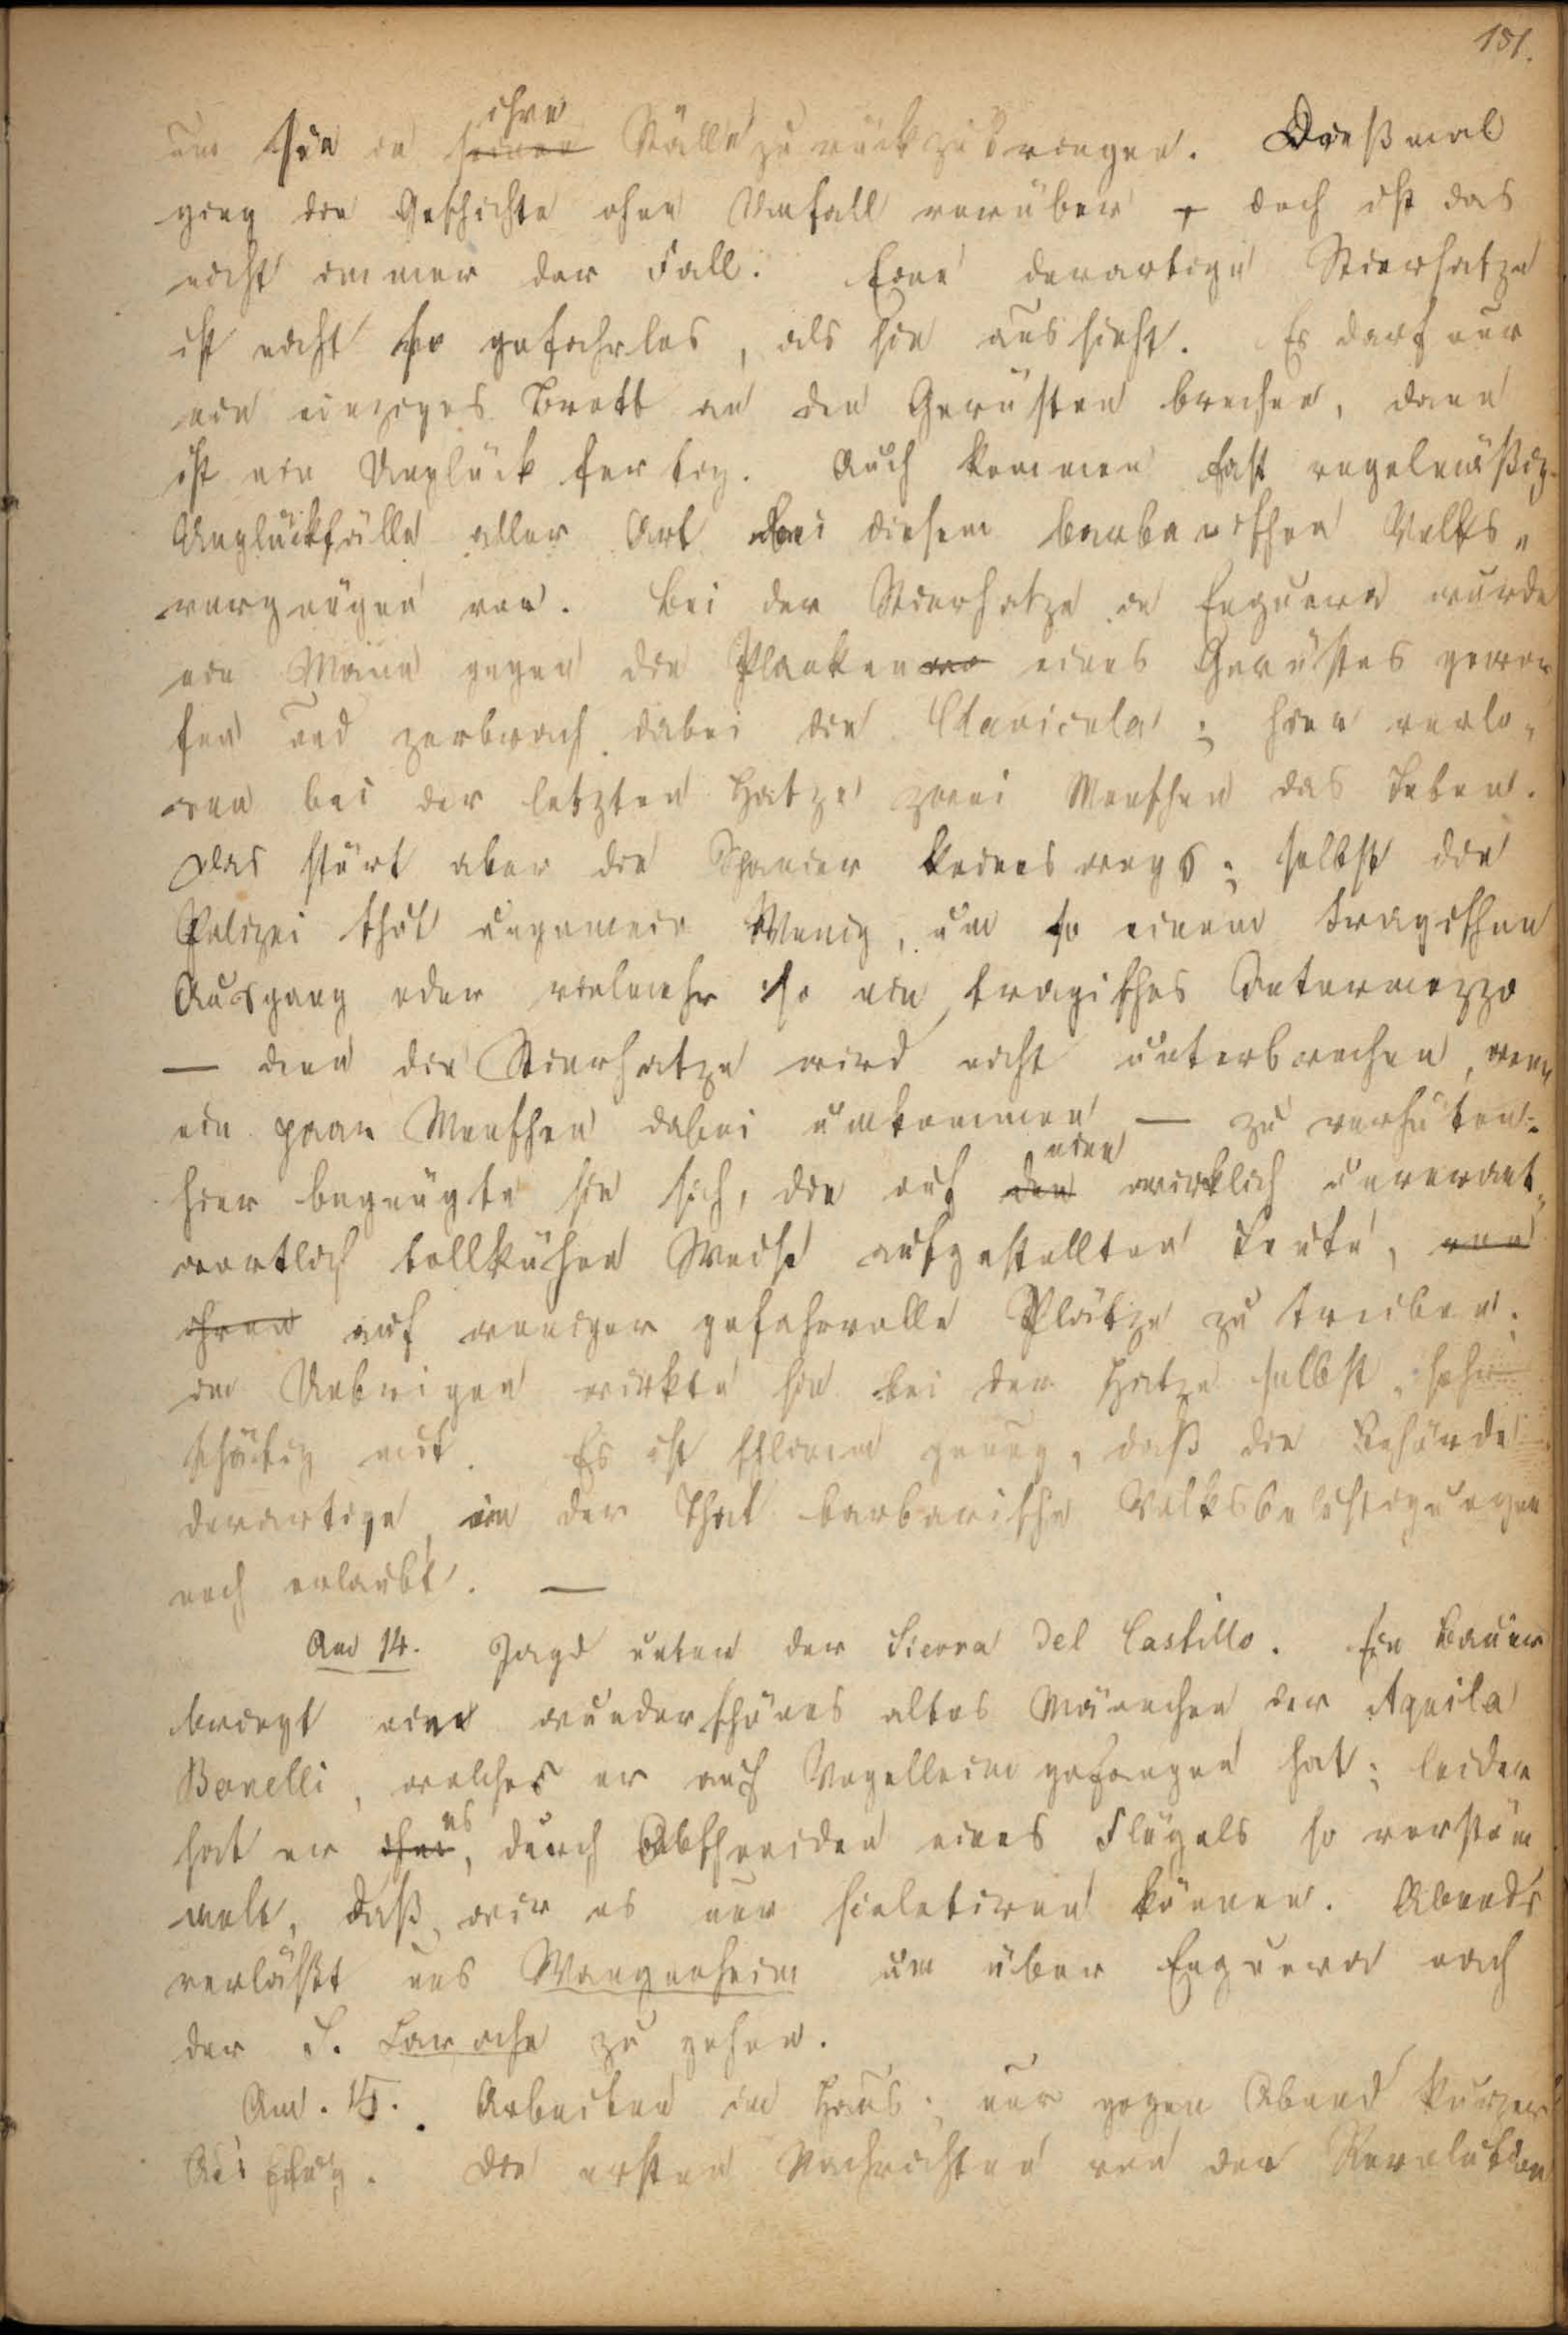 151.
um sie in ~~seinen~~ ihre Ställe zurückzubringen. Dießmal
ging die Geschichte ohne Unfall vorüber, doch ist das
nicht immer der Fall. Eine derartige Stierhatze
ist nicht so gefahrlos, als sie aussieht. Es darf nur
ein einziges Brett an den Gerüsten brechen, dann
ist ein Unglück fertig. Auch kommen fast regelmäßig
Unglückfälle aller Art bei diesem barbarischen Volks„
vergnügen vor. Bei der Stierhatze in Enguera wurde
ein Mann gegen die Planken eines Gerüstes gewor
fen und zerbrach dabei die Clavicula; hier verlo„
ren bei der letzten Hatze zwei Menschen das Leben.
Das stört aber die Spanier keineswegs; selbst die
Polizei thut ungemein Wenig, um so einem tragischen
Ausgang oder vielmehr so ein tragisches Intermezzo
— denn die Stierhatze wird nicht unterbrochen, wenn
ein paar Menschen dabei umkommen — zu verhüten:
hier begnügte sie sich, die auf ~~den~~ eine wirklich unverant„
wortlich tollkühne Weise aufgestellten Leute, ~~von~~
~~ihren~~ auf weniger gefahrvolle Plätze zu treiben;
im Uebrigen wirkte sie bei der Hatze selbst sehr
thätig mit. Es ist schlimm genug, daß die Behörde
derartige, in der That barbarische Volksbelustigungen
noch erlaubt. —
Am 14. Jagd unten der Sierra del Castillo. Ein Bauer
bringt ein wunderschönes altes Männchen der Aquila
Bonelli, welches er auf Vogelleim gefangen hat; leider
hat er ~~ihn~~ es, durch Abschneiden eines Flügels so verstüm
melt, daß wir es nur skeletiren können. Abends
verläßt uns Wangenheim um über Enguera nach
der S. Laroche zu gehen.
Am 15. Arbeiten im Haus; nur gegen Abend kurzer
Ausflug. Die ersten Nachrichten von der Revolution